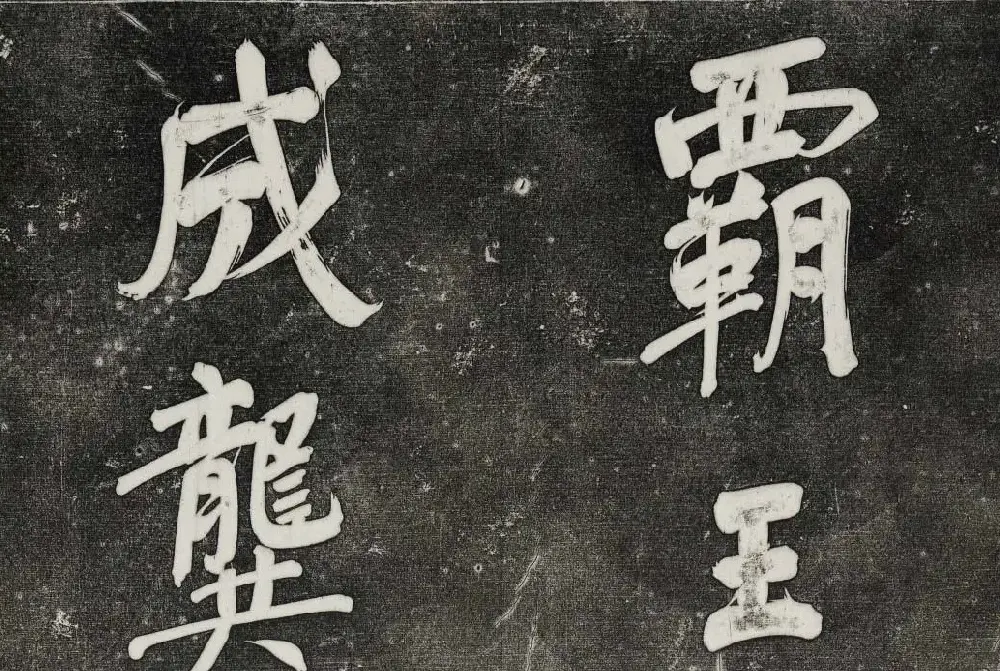 霸王
成龔